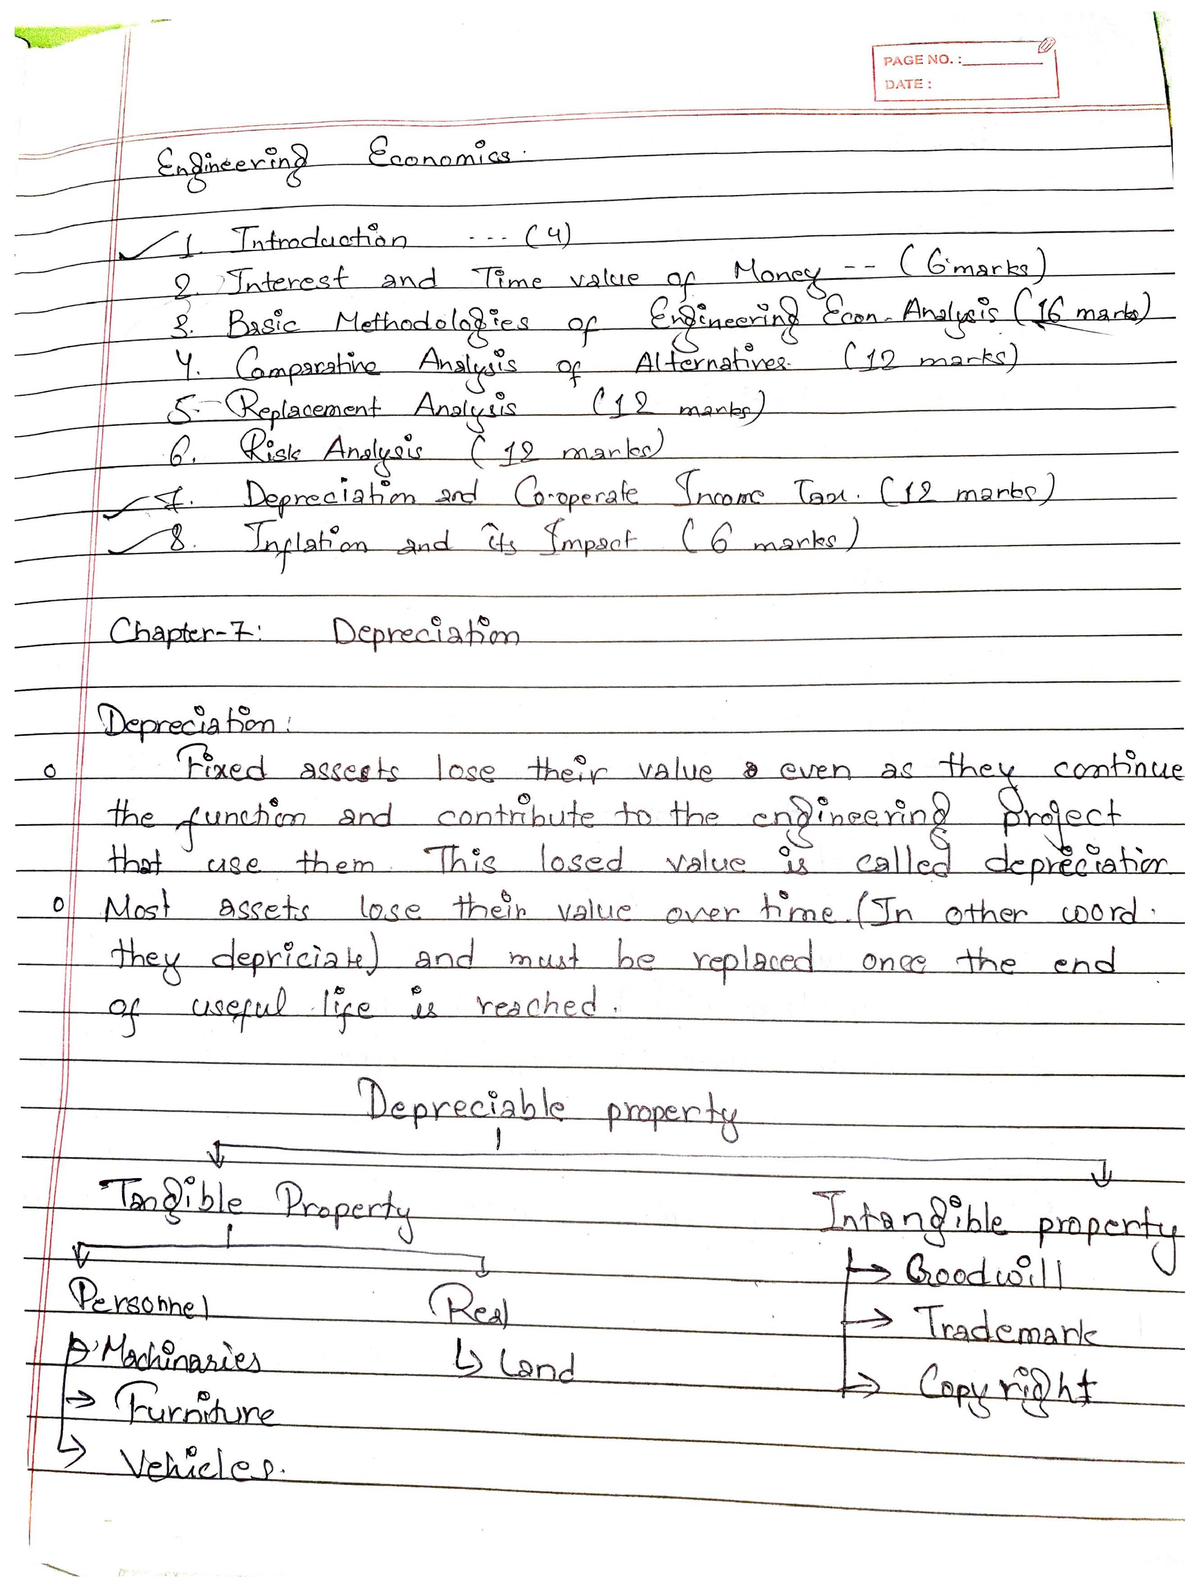 PAGE NO. :
DATE :
Engineering Economics.
1. Introduction --- (4)
2. Interest and Time value of Money -- (6 marks)
3. Basic Methodologies of Engineering Econ. Analysis (16 marks)
4. Comparative Analysis of Alternatives. (12 marks)
5. Replacement Analysis (12 marks)
6. Risk Analysis (12 marks)
7. Depreciation and Co-operate Income Tax. (12 marks)
8. Inflation and its Impact (6 marks)
Chapter-7: Depreciation
Depreciation:
Fixed assests lose their value even as they continue
the function and contribute to the engineering project
that use them. This losed value is called depreciation
Most assets lose their value over time. (In other word.
they depriciate) and must be replaced once the end
of useful life is reached.
Depreciable property
Tangible Property Intangible property
→ Goodwill
Personnel Real
→ Trademark
→ Machinaries ↳ Land
→ Copyright
→ Furniture
↳ Vehicles.